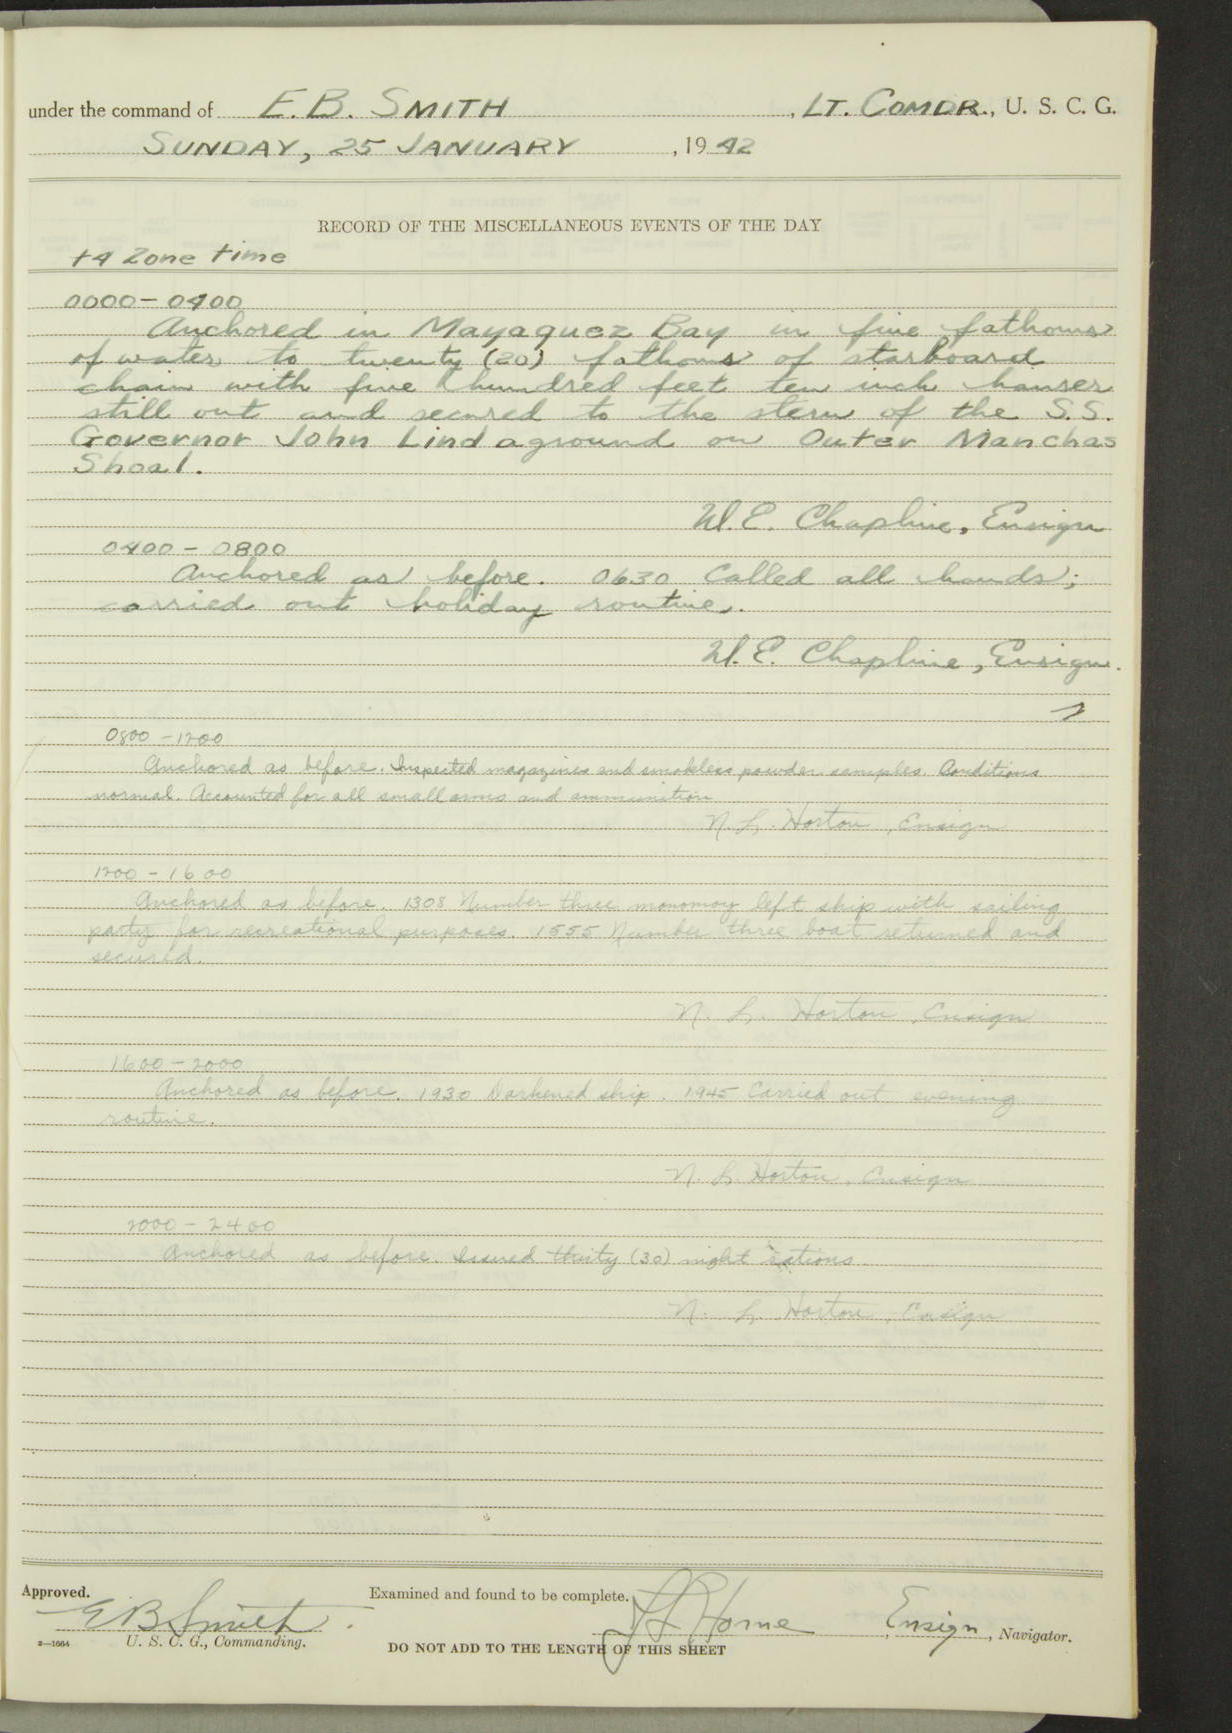 under the command of E. B. SMITH, LT. COMDR., U. S. C. G.
SUNDAY, 25 JANUARY, 1942
RECORD OF THE MISCELLANEOUS EVENTS OF THE DAY
+4 Zone time
0000 - 0400
Anchored in Mayaguez Bay in five fathoms
of water to twenty (20) fathoms of starboard
chain with five hundred feet ten inch hawser
still out and secured to the stern of the S.S.
Governor John Lind aground on Outer Manchas
Shoal.
W. E. Chapline, Ensign
0400 - 0800
Anchored as before. 0630 Called all hands;
carried out holiday routine.
W. E. Chapline, Ensign.
0800 - 1200
Anchored as before. Inspected magazines and smokless powder samples. Conditions
normal. Accounted for all small arms and ammunition
N. L. Horton, Ensign
1200 - 1600
Anchored as before. 1308 Number three monomoy left ship with sailing
party for recreational purposes. 1555 Number three boat returned and
secured.
N. L. Horton, Ensign
1600 - 2000
Anchored as before. 1930 Darkened ship. 1945 Carried out evening
routine.
N. L. Horton, Ensign
2000 - 2400
Anchored as before. Issued thirty (30) night rations.
N. L. Horton, Ensign
Approved. Examined and found to be complete.
E B Smith Horne Ensign, Navigator.
2—1664 U. S. C. G., Commanding.
DO NOT ADD TO THE LENGTH OF THIS SHEET